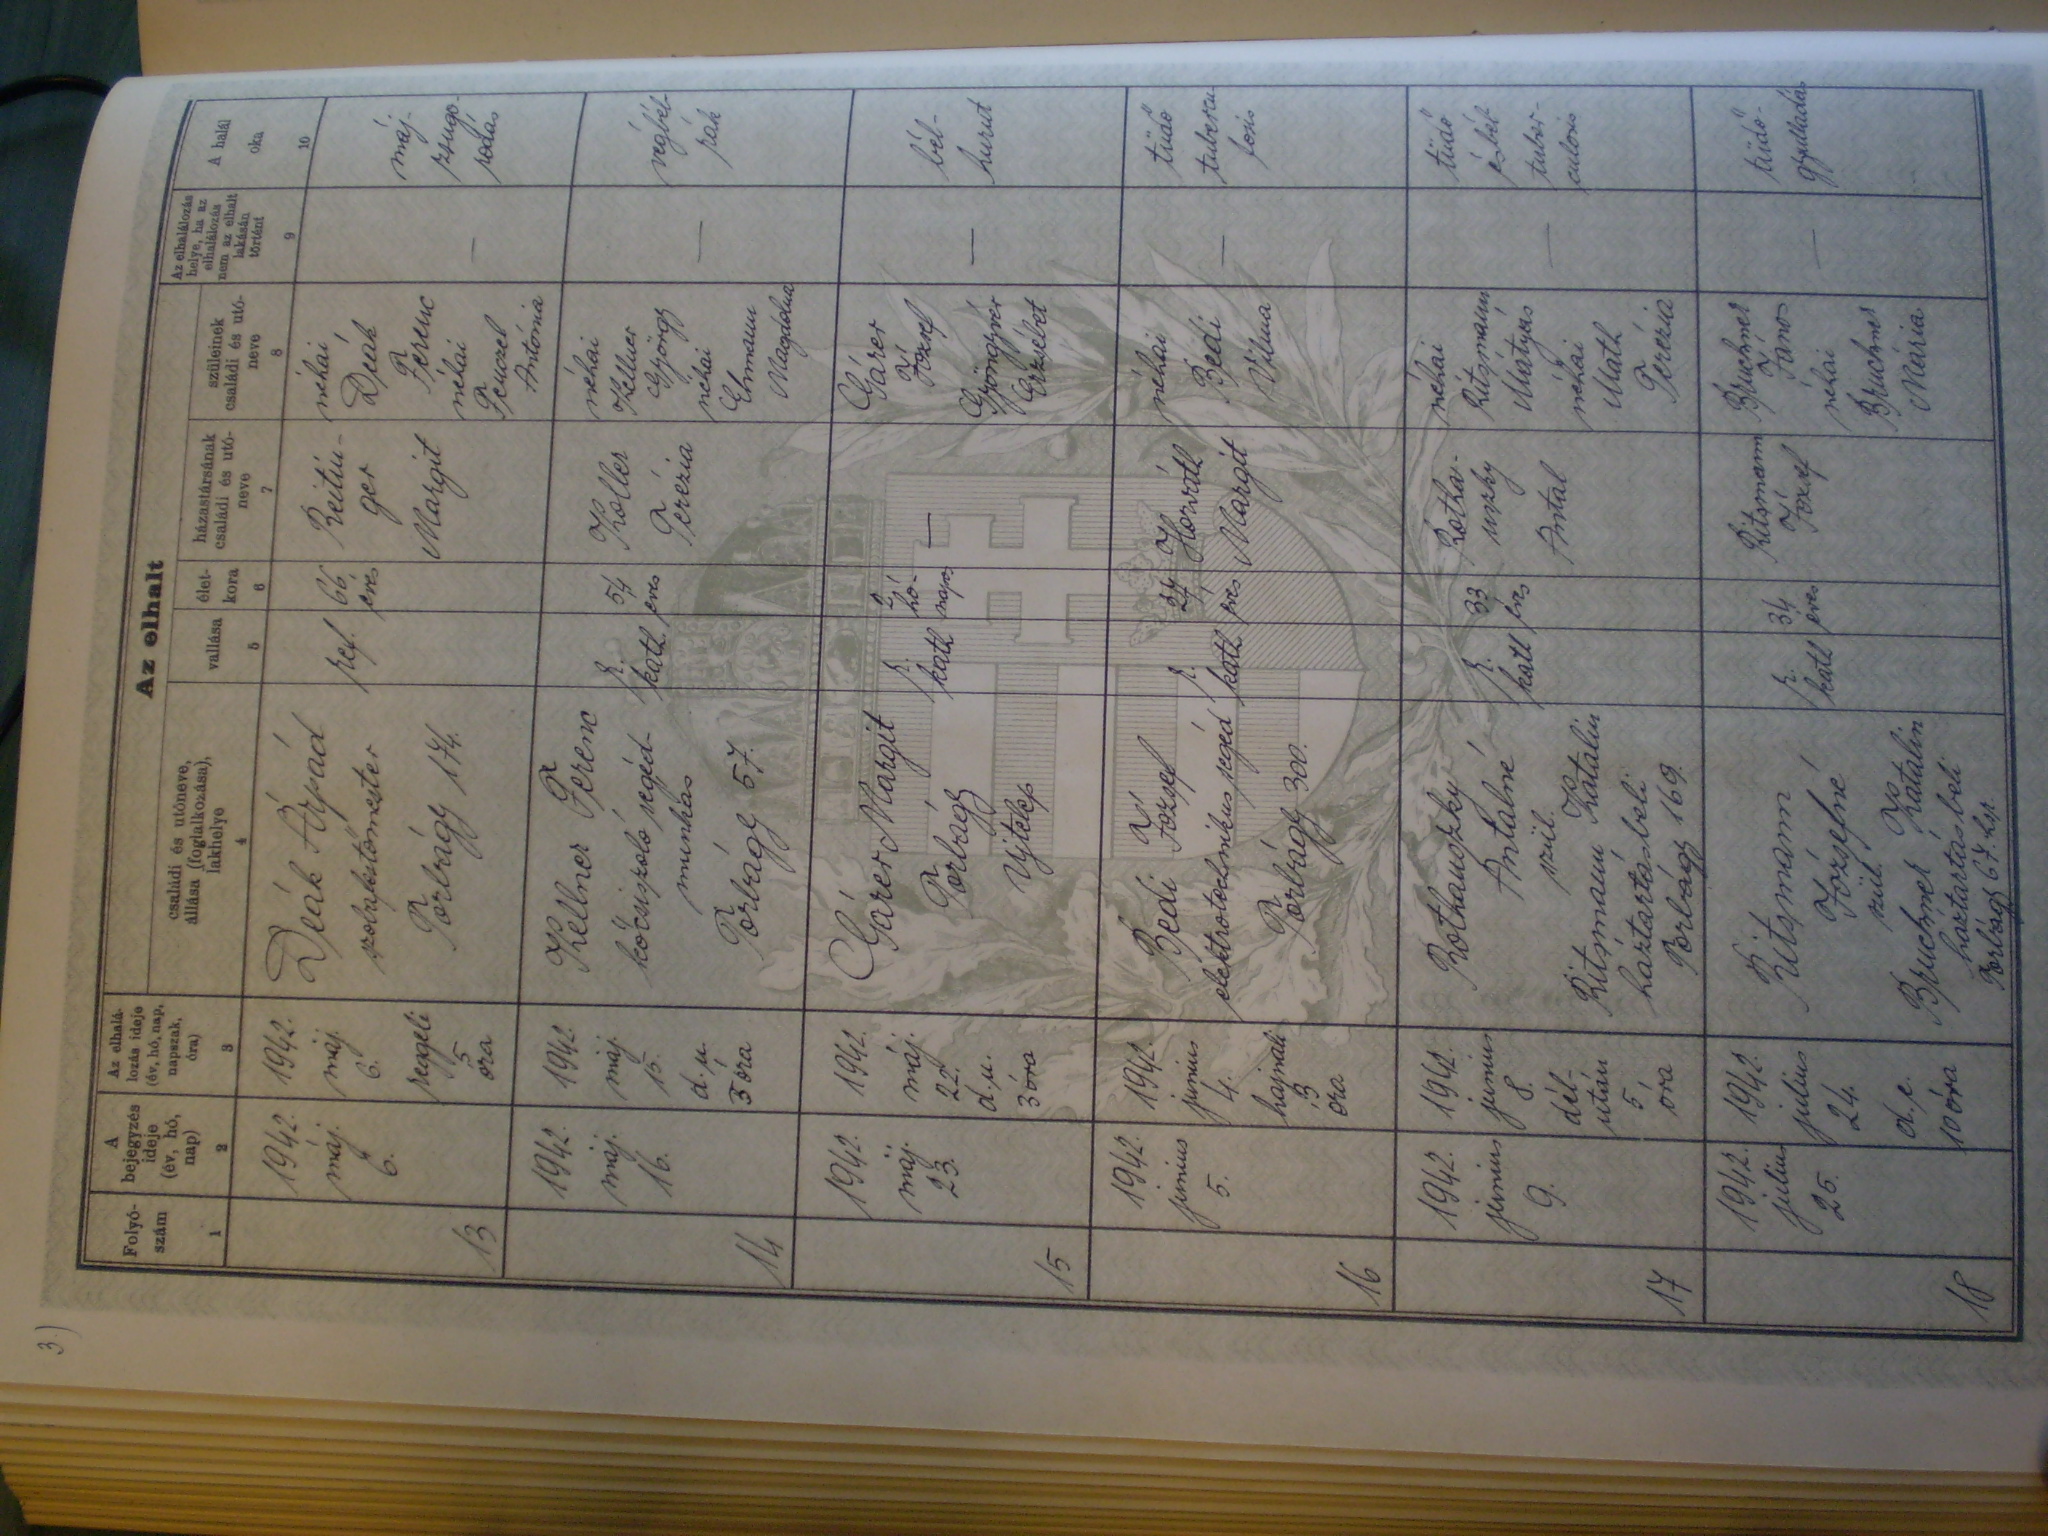 3.)
Az elhalt
Folyó-
szám
A
bejegyzés
ideje
(év, hó,
nap)
Az elhalá-
lozás ideje
(év, hó, nap,
napszak,
óra)
családi és utóneve,
állása (foglalkozása),
lakhelye
vallása
élet-
kora
házastársának
családi és utó-
neve
szüleinek
családi és utó-
neve
Az elhalálozás
helye, ha az
elhalálozás
nem az elhalt
lakásán
történt
A halál
oka
1
2
3
4
5
6
7
8
9
10
13
1942.
máj.
6.
1942.
máj.
6.
reggeli
5
óra
Deák Árpád
Torbágy 174.
ref.
66
éves
Reitin-
ger
Margit
néhai
Deák
Ferenc
néhai
Antónia
—
máj-
zsugo-
rodás
14
1942.
máj.
16.
1942.
máj.
15.
d.u.
3 óra
Kellner Ferenc
segéd-
munkás
Torbágy 57.
r.
kath.
54
éves
Koller
Terézia
néhai
Kellner
György
néhai
Ehmann
Magdolna
—
végbél-
rák
15
1942.
máj.
23.
1942.
máj.
22.
d.u.
3 óra
Gárer Margit
Torbágy
Ujtelep
r.
kath
hó-
napos
—
Gárer
József
Gyöngyvér
Erzsébet
—
bél-
hurut
16
1942.
junius
5.
1942.
junius
4.
hajnali
3
óra
Bedi József
elektrotechnikus segéd
Torbágy 300.
r.
kath.
24
éves
Horváth
Margit
néhai
Bedi
Vilma
—
tüdő
tuberku-
losis
17
1942.
junius
9.
1942.
junius
8.
dél-
után
5
óra
Rothauszky
Antalné
szül.
Ritsmann Katalin
háztartásbeli
Torbágy 169.
r.
kath
33
éves
Rothau-
szky
Antal
néhai
Ritsmann
Mátyás
néhai
Math
Terézia
—
tüdő
és bél
tuber-
culosis
18
1942.
julius
25.
1942.
julius
24.
d.e.
10 óra
Ritsmann
Józsefné
szül.
Bruchner Katalin
háztartásbeli
Torbágy 67. hsz.
r.
kath
34
éves
Ritsmann
József
Bruchner
János
néhai
Bruchner
Mária
—
tüdő-
gyulladás